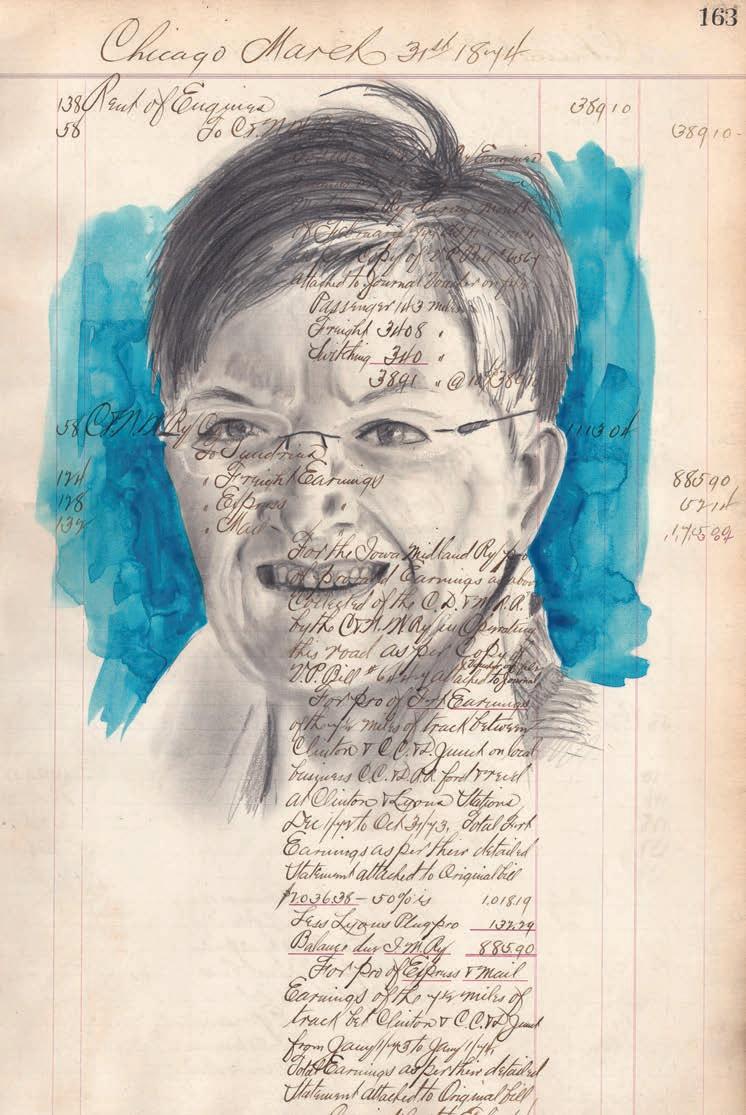 163
Chicago March 31st 1874
138 Rent of Engines 38910
58 To C & N W Ry Co 38910
Ry Engines
during month
of February
Copy of V.P. Bill # 6567
attached to Journal Voucher on file
Passenger 143 miles
Freight 3408 "
Switching 340 "
3891 " @ 10¢ 38910
58 C & N W Ry Co 111304
To Sundries
124 " Freight Earnings 88590
128 " Express " 5214
132 " Mail " 17500
For the Iowa Midland Ry pro
of prorated Earnings as above
Collected of the C. D. & M. R.R.
by the C & N. W Ry in Operating
this road as per Copy of
V.P. Bill # attached to Journal
Voucher on file
For pro of Frt Earnings
of the miles of track between
Clinton & C. C. & D. Junct on local
business C. C. & D. R.R. ford & recd
at Clinton & Lyons Stations
Dec 1/72 to Oct 31/73. Total Frt
Earnings as per their detailed
Statement attached to Original bill
$2036.38 - 50% is 1.01819
Less Lyons Plug pro 132.29
Balance due I. M. Ry 885.90
For pro of Express & Mail
Earnings of the miles of
track bet Clinton & C. C. & D. Junct
from Jany 1/73 to Jany 1/74.
Total Earnings as per their detailed
Statement attached to Original bill